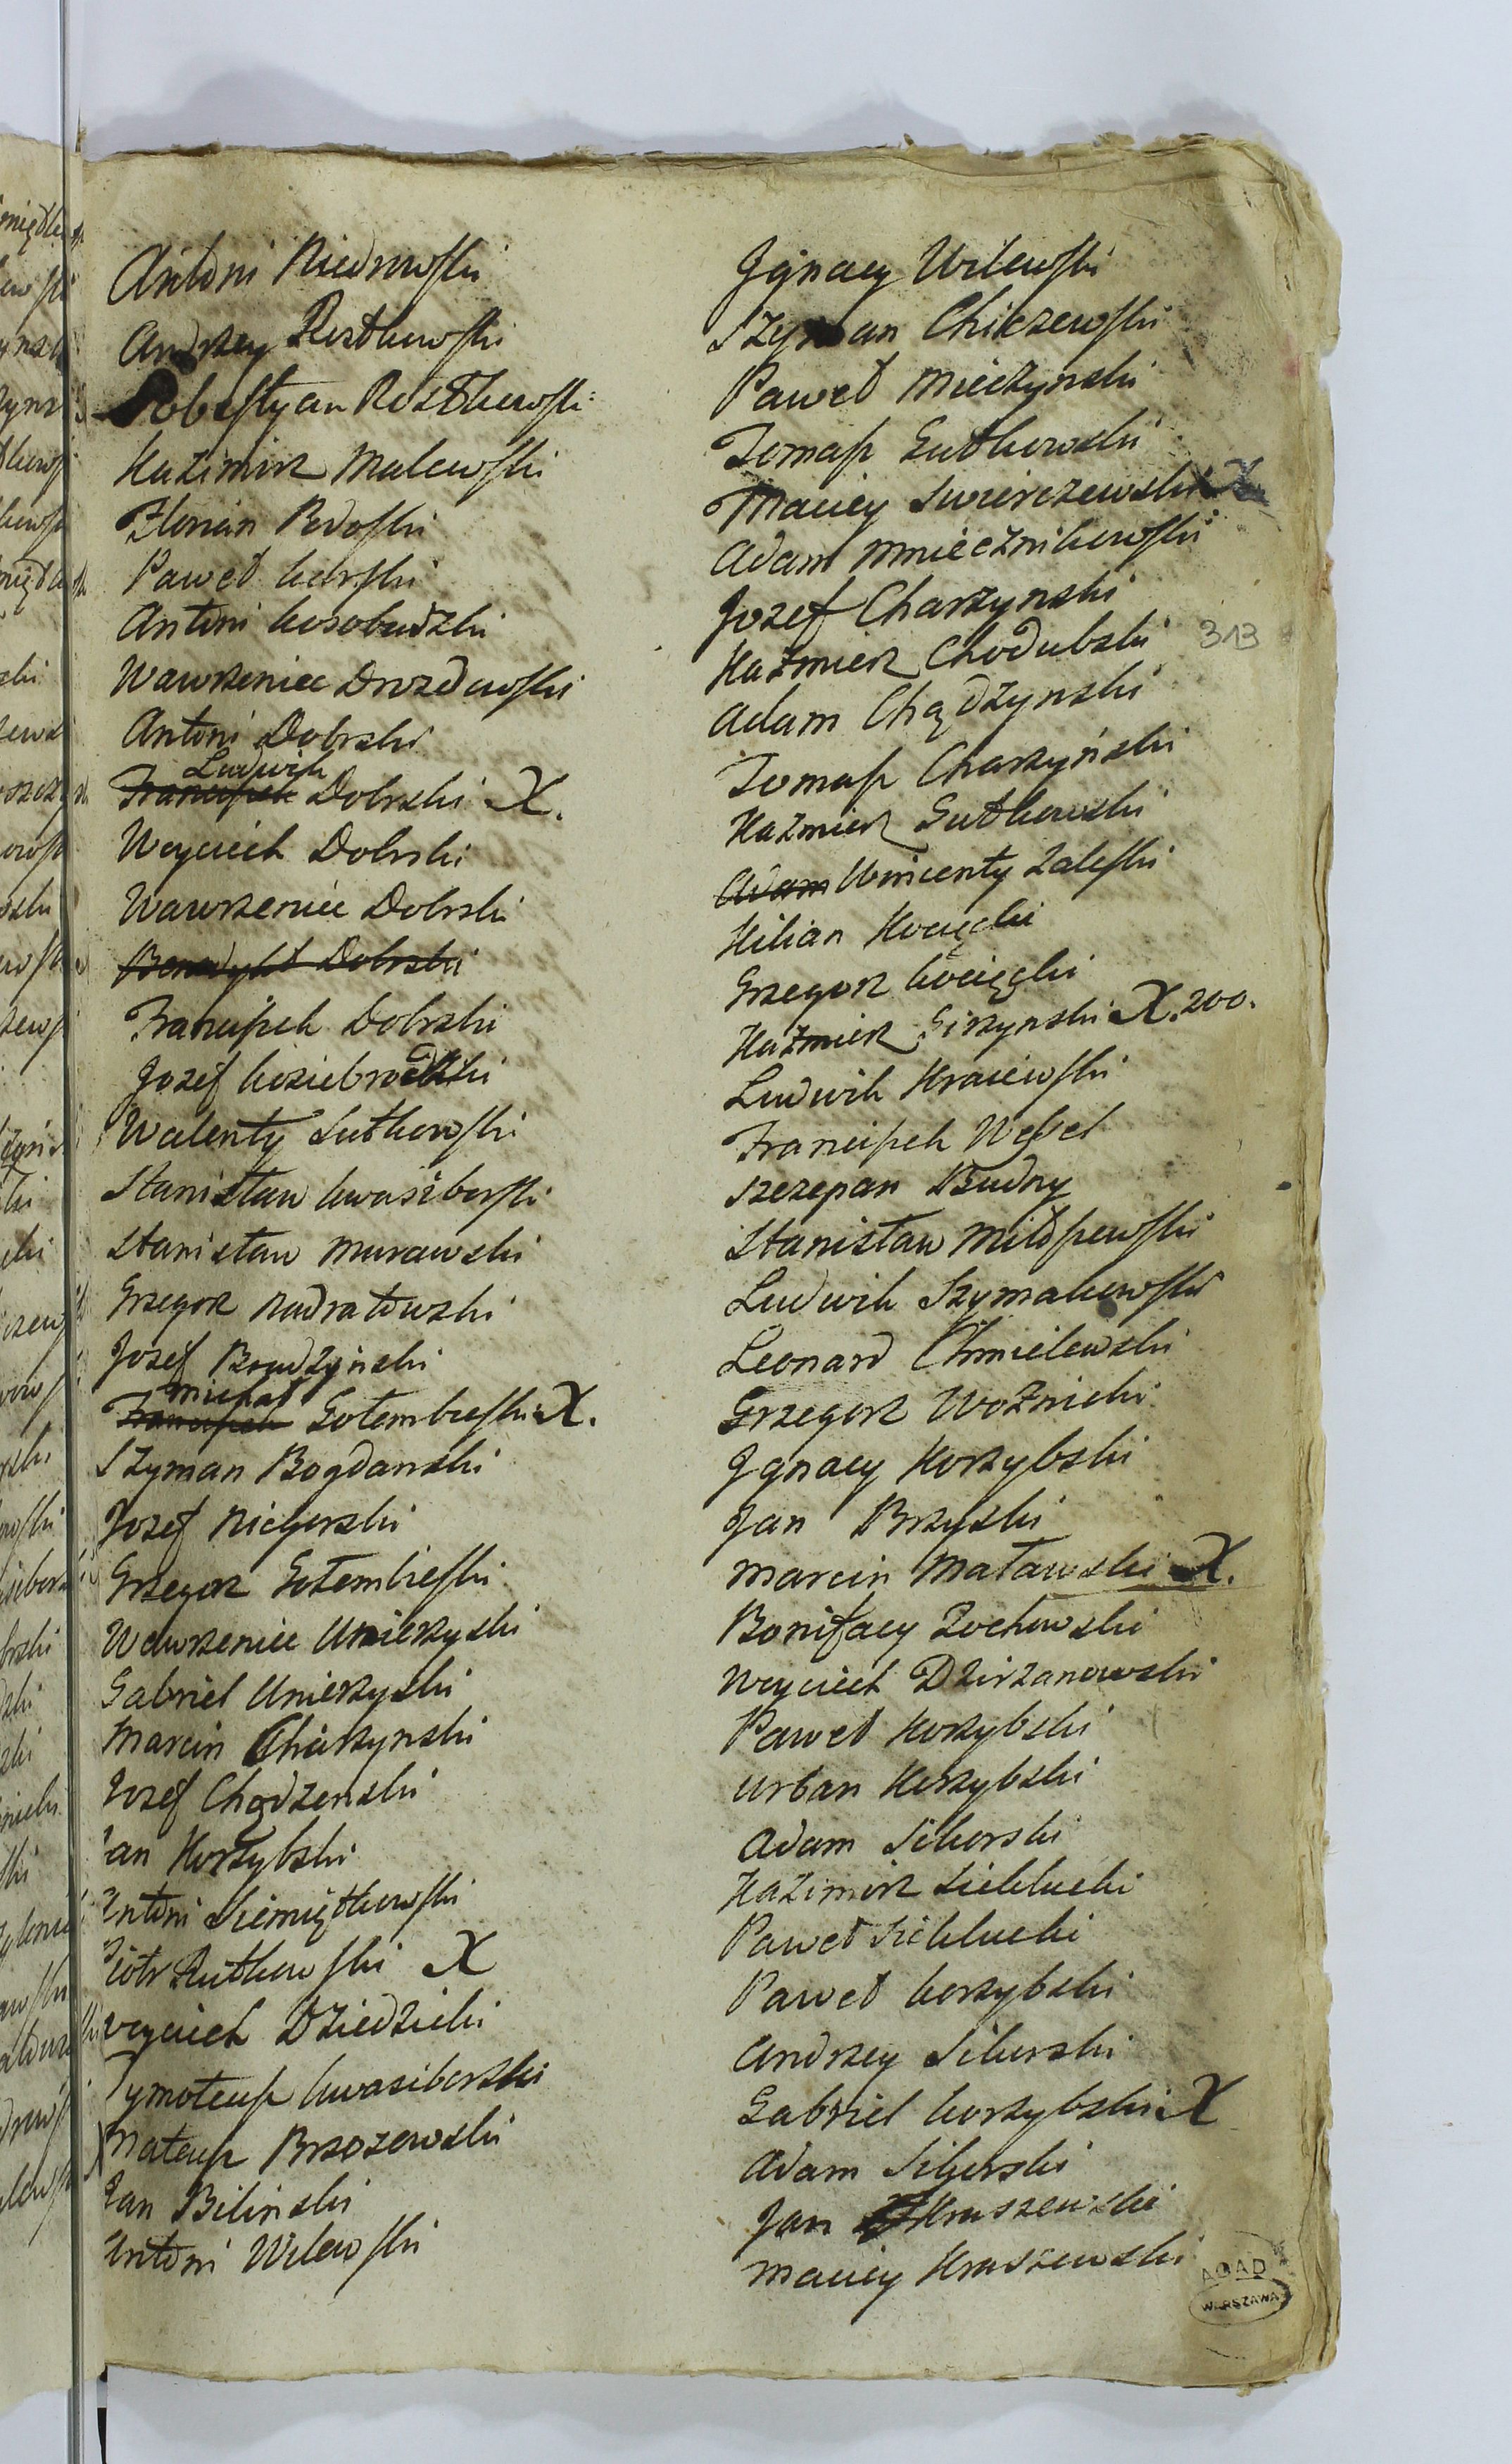 Antoni Niedrowski
Andrzey Rostkowski
Sobestyan Rostkowski
Kazimirz Malewski
Florian Redoski
Paweł Korski
Antoni Kosobudzki
Wawrzeniec Drozdowski
Antoni Dobrski
Ludwik
Franciszek Dobrski X.
Woyciech Dobrski
Wawrzeniec Dobrski
Benedykt Dobrski
Franciszek Dobrski
Jozef Koziebrodzki
Walenty Sutkowski
Stanisław Kwasiborski
Stanisław Murawski
Grzegorz Nadratowski
Jozef Brudzyński
Michał
Franciszek Gołembieski X.
Szyman Bogdanski
Jozef Niegorski
Grzegorz Gołembieski
Wawrzeniec Umierzyski
Gabriel Umierzyski
Marcin Charzynski
Jozef Chądzenski
Jan Korzybski
Antoni Siemiątkowski
Piotr Rutkowski X
Woyciech Dziedzicki
Tymoteusz Kwasiborski
Mateusz Brzozowski
Jan Bilinski
Antoni Wilewski
Jgnacy Wilewski
Szyman Chiczewski
Paweł Mieczynski
Tomasz Gutkowski
Maciey Swierczewski X
Adam Mniecznikowski
Jozef Charzynski
Kazmierz Chodubski
313
Adam Chądzynski
Tomasz Charzyński
Kazmierz Gutkowski
Adam Wincenty Zaleski
Kilian Kocięcki
Grzegorz Kocięcki
Kazmierz Girzynski X. 200.
Ludwik Kraiewski
Franciszek Wessel
Szczepan Budny
Stanisław Miłoszewski
Ludwik Szymakowski
Leonard Chmielewski
Grzegorz Woznicki
Jgnacy Korzybski
Jan Brzyski
Marcin Maławski X.
Bonifacy Zochowski
Woyciech Dzirzanowski
Paweł Korzybski
Urban Korzybski
Adam Sikorski
Kazimirz Sieklucki
Paweł Sieklucki
Paweł Korzybski
Andrzey Sikorski
Gabriel Korzybski X
Adam Sikorski
Jan Kraszewski
Maciey Kraszewski
AGAD
WARSZAWA